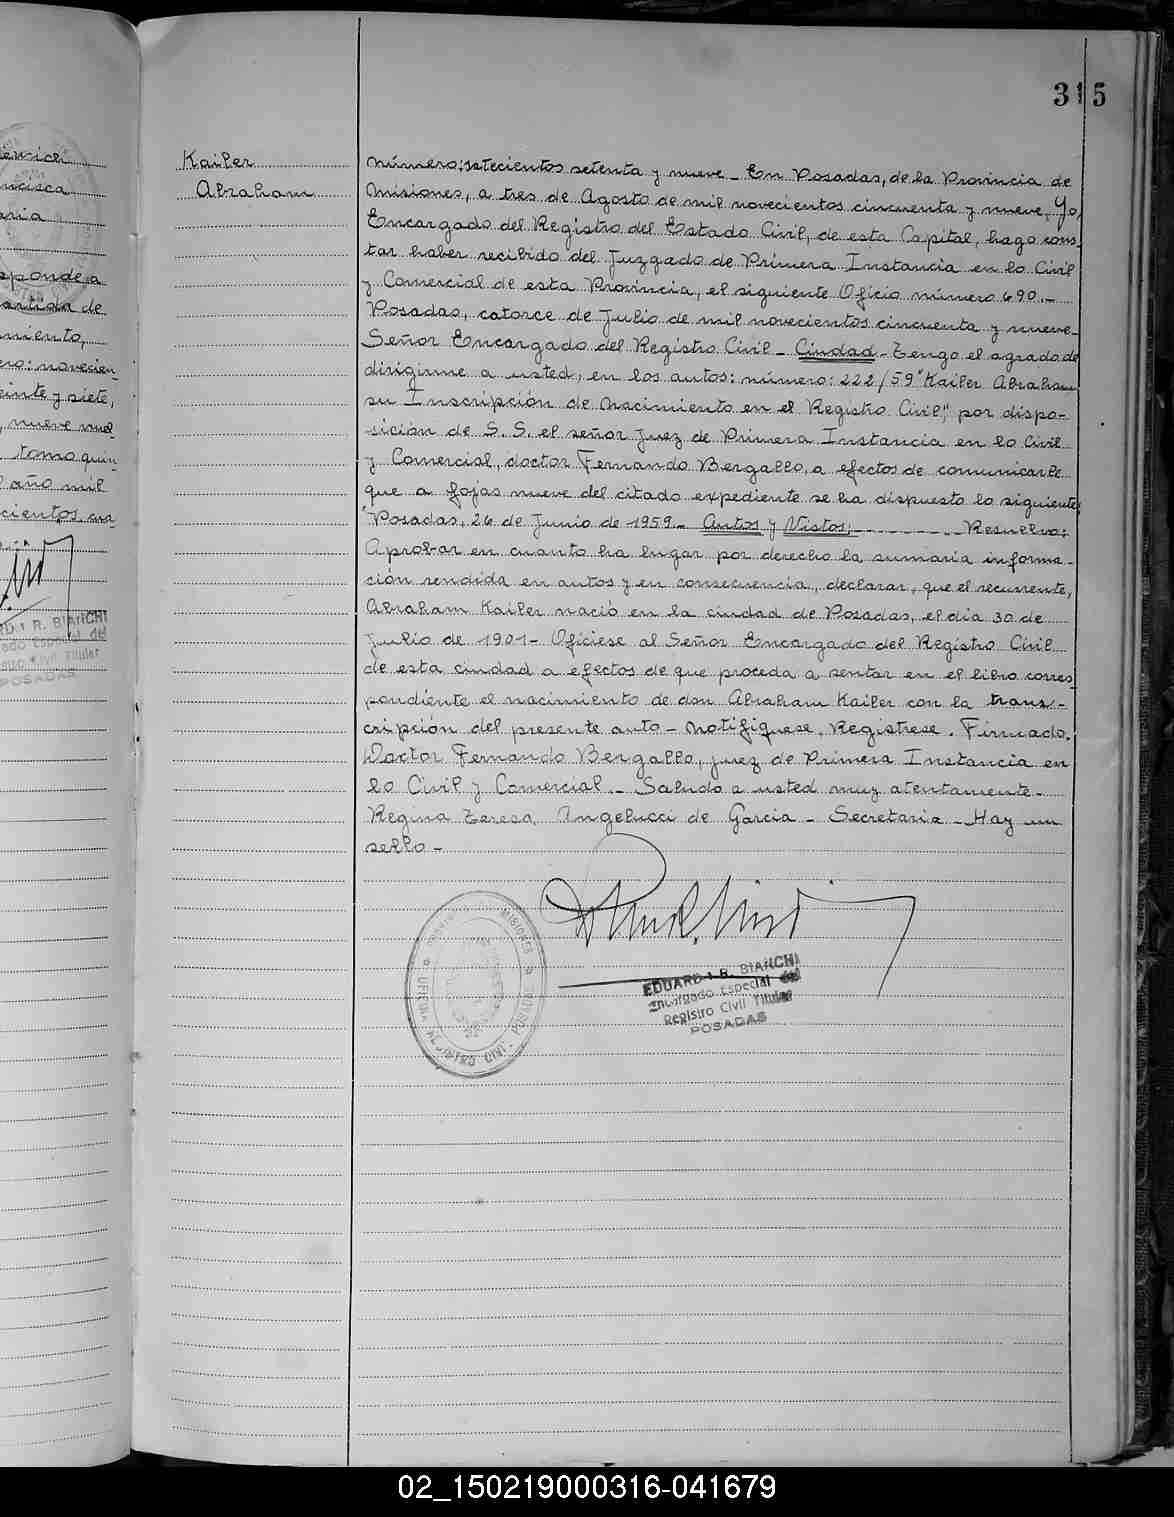 315
ponde a
artida de
miento,
ero: novecien-
einte y siete,
, nueve mil
tomo quin
año mil
cientos cua
R. BIANCHI
Especial del
Civil Titular
POSADAS
Kailer
Abraham
número: setecientos setenta y nueve - En Posadas, de la Provincia de
Misiones, a tres de Agosto de mil novecientos cincuenta y nueve, Yo,
Encargado del Registro del Estado Civil, de esta Capital, hago cons-
tar haber recibido del Juzgado de Primera Instancia en lo Civil
y Comercial de esta Provincia, el siguiente Oficio número 690.-
Posadas, catorce de Julio de mil novecientos cincuenta y nueve-
Señor Encargado del Registro Civil - Ciudad - Tengo el agrado de
dirigirme a usted, en los autos: número: 222/59 "Kailer Abraham
su Inscripción de nacimiento en el Registro Civil", por dispo-
sición de S. S. el señor Juez de Primera Instancia en lo Civil
y Comercial, doctor Fernando Bergallo, a efectos de comunicarle
que a fojas nueve del citado expediente se ha dispuesto lo siguiente:
"Posadas, 26 de Junio de 1959.- Autos y Vistos: - - - - - Resuelvo:
Aprobar en cuanto ha lugar por derecho la sumaria informa-
ción rendida en autos y en consecuencia, declarar, que el recurrente,
Abraham Kailer nació en la ciudad de Posadas, el día 30 de
Julio de 1901- Ofíciese al Señor Encargado del Registro Civil
de esta ciudad a efectos de que proceda a sentar en el libro corres-
pondiente el nacimiento de don Abraham Kailer con la trans-
cripción del presente auto - Notifiquese, Registrese. Firmado.
Doctor Fernando Bergallo, juez de Primera Instancia en
lo Civil y Comercial.- Saludo a usted muy atentamente-
Regina Teresa Angelucci de Garcia - Secretaria - Hay un
sello -
MISIONES
POSADAS
EDUARDO R. BIANCHI
Encargado Especial del
Registro Civil Titular
POSADAS
02_150219000316-041679